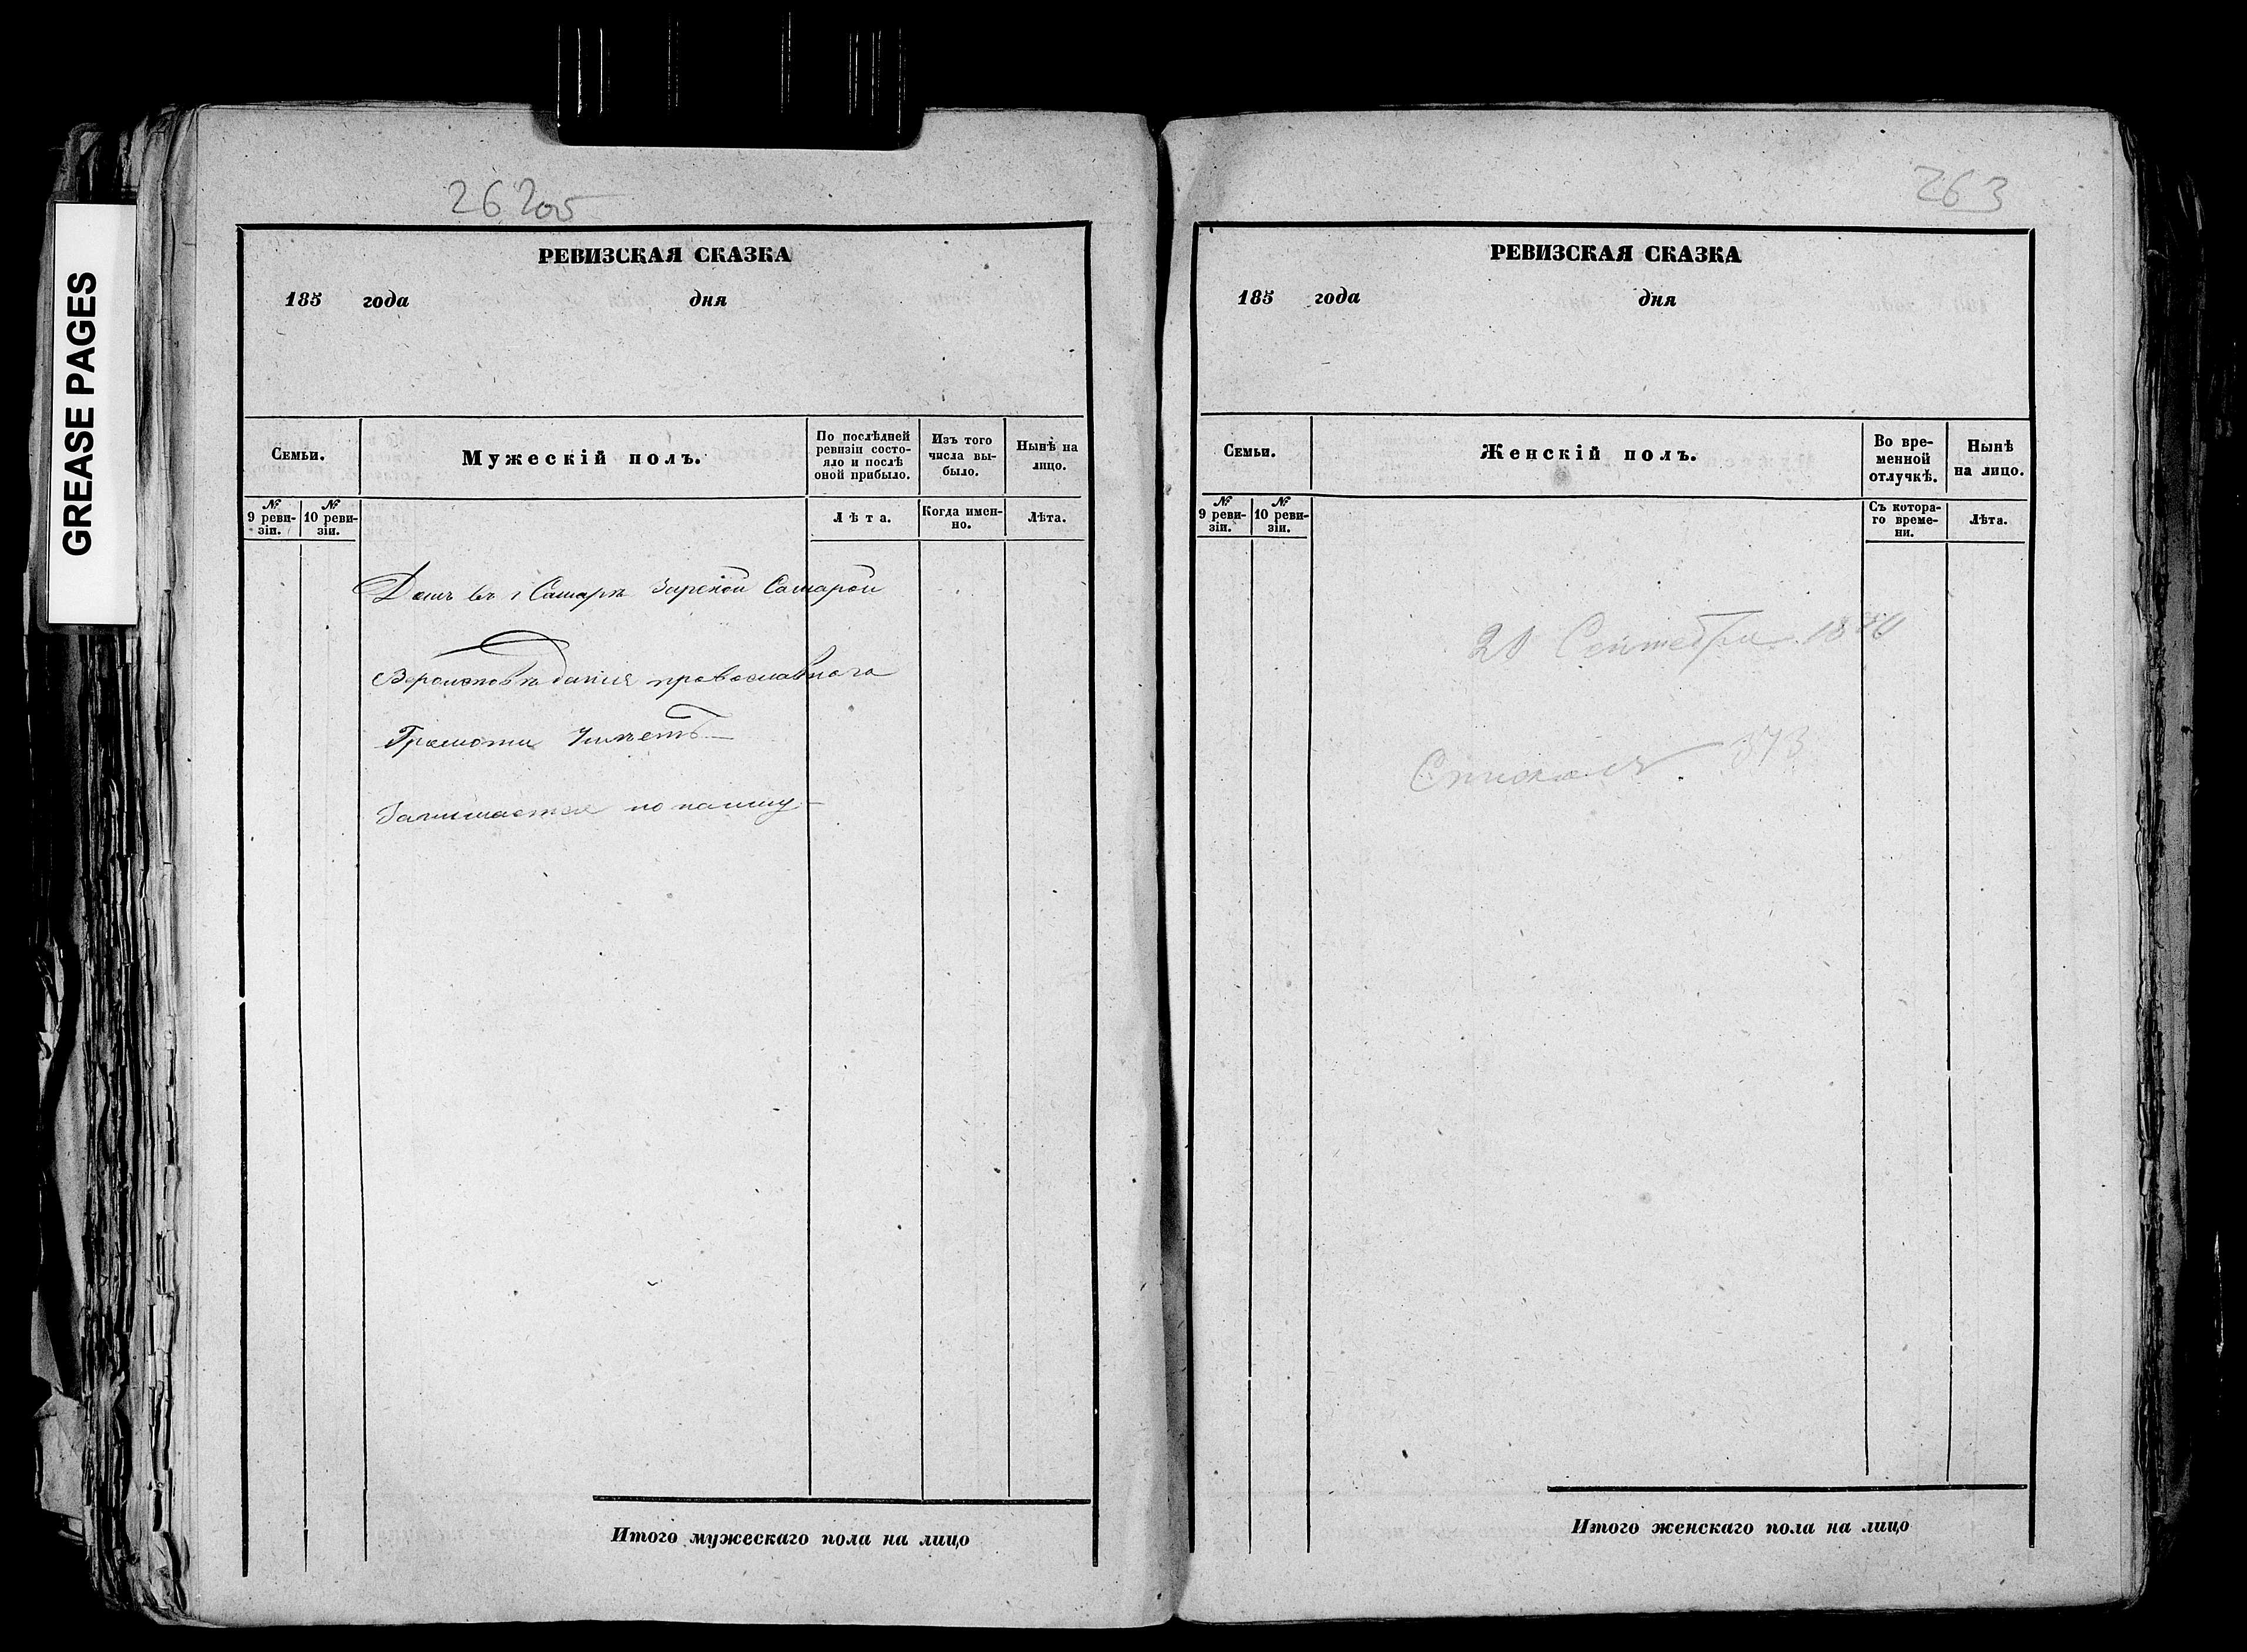 GREASE PAGES
262об
РЕВИЗСКАЯ СКАЗКА
185 года дня
Семьи.
Мужескій полъ.
По послѣдней ревизіи состояло и послѣ оной прибыло.
Изъ того числа выбыло.
Нынѣ на лицо.
№ 9 ревизіи.
№ 10 ревизіи.
Лѣта.
Когда именно.
Лѣта.
Домъ въ г Самарѣ за рекой Самарой
Вероисповѣданія православнаго
Грамоти
Занимается по найму
Итого мужескаго пола на лицо
263
РЕВИЗСКАЯ СКАЗКА
185 года дня
Семьи.
Женскій полъ.
Во временной отлучкѣ.
Нынѣ на лицо.
№ 9 ревизіи.
№ 10 ревизіи.
Съ котораго времени.
Лѣта.
20 Сентебря
373
Итого женскаго пола на лицо